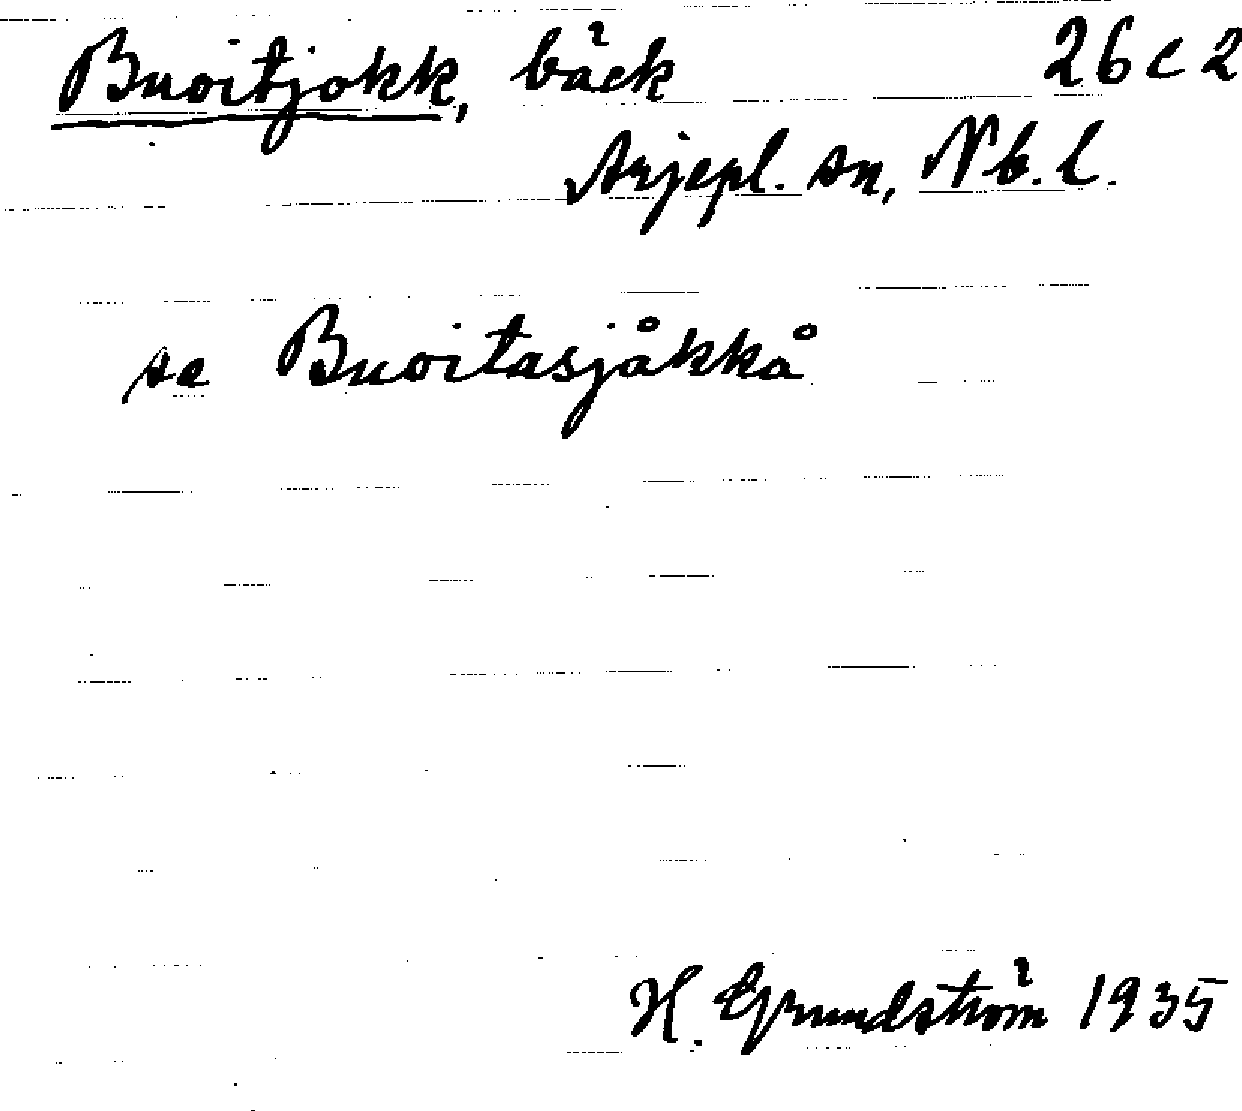 Buoitjokk, bäck 26 c 2
Arjepl. sn, Nb. l.
se Buoitasjåkkå
H. Grundström 1935